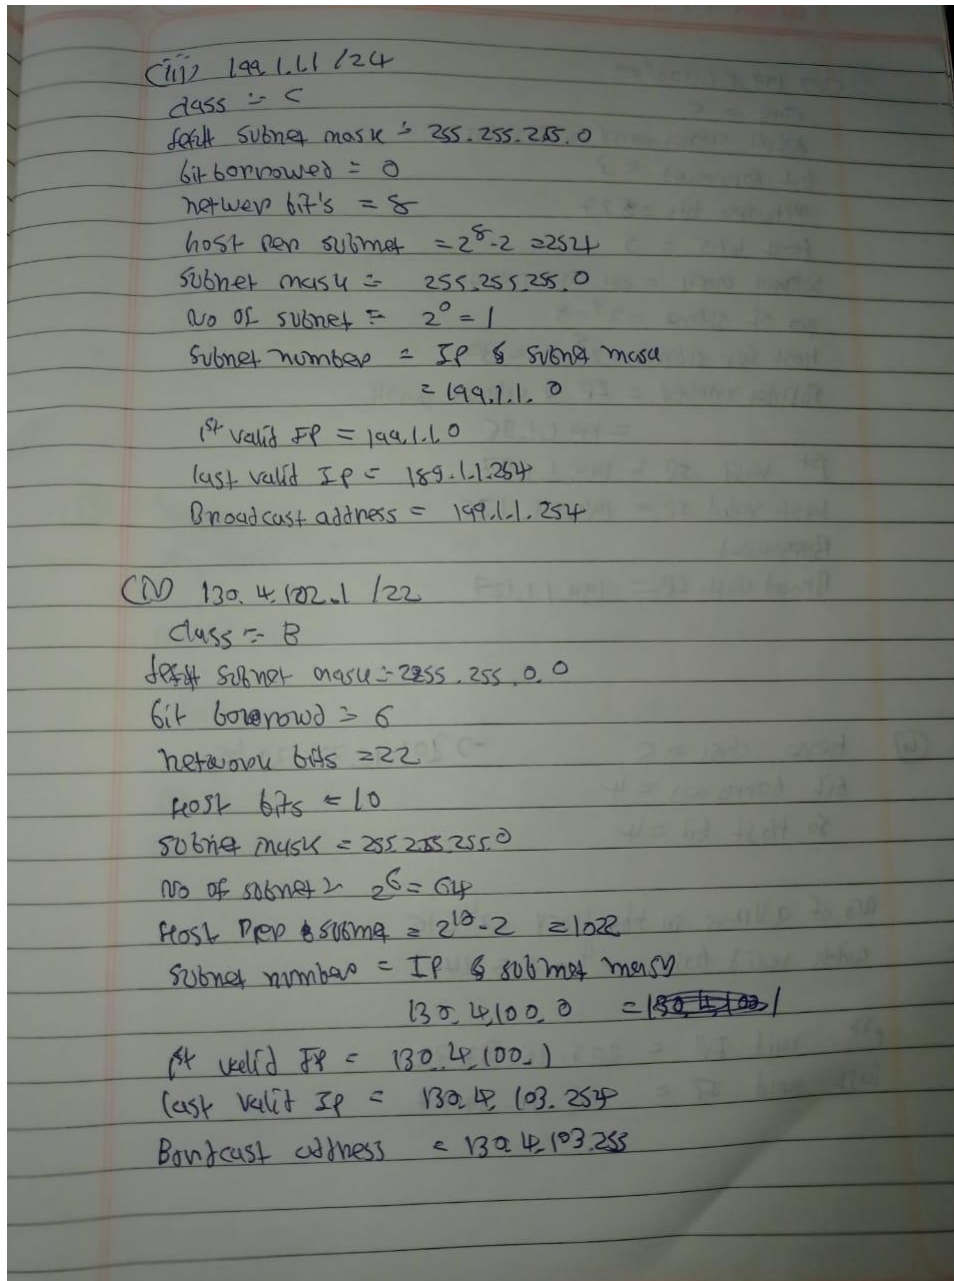 (iii) 199.1.1.1 /24
class :- C
defult subnet mask :- 255.255.255.0
bit borrowed = 0
netwer bit's = 8
host per submet = 2⁸-2 = 254
subnet mask = 255.255.255.0
No of subnet = 2⁰ = 1
subnet number = IP & subnet mask
= 199.1.1.0
1st valid IP = 199.1.1.0
last valid IP = 189.1.1.254
Broadcast address = 199.1.1.254
(iv) 130.4.102.1 /22
class :- B
subnet mask :- 2255.255.0.0
bit = 6
network bits = 22
Host bits = 10
subnet mask = 255.255.255.0
No of subnet 2⁶ = 64
Host per subme = 2¹⁰-2 = 1022
subnet number = IP & submet mask
130.4.100.0 =
1st velid IP = 130.4.100.1
last valid IP = 130.4.103.254
address = 130.4.103.255